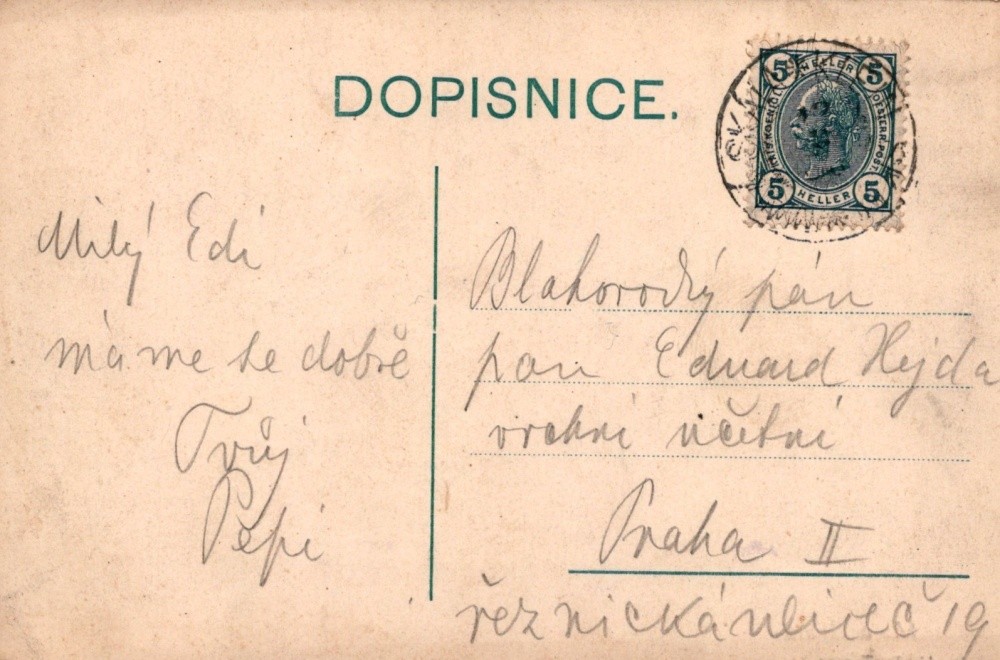 DOPISNICE.
5 HELLER 5
5 HELLER 5
Milý Edi
máme se dobře
Tvůj
Pepi
Blahorodý pán
pan Eduard Hejda
vrchní účetní
Praha II
řeznická ulice č 19